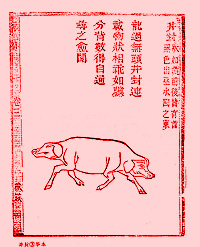 并封
狀如彘前後皆有首
黑色出巫咸國之東
龍過無頭并封連
載物狀相乖如驥
分背數得自通
尋之愈閡